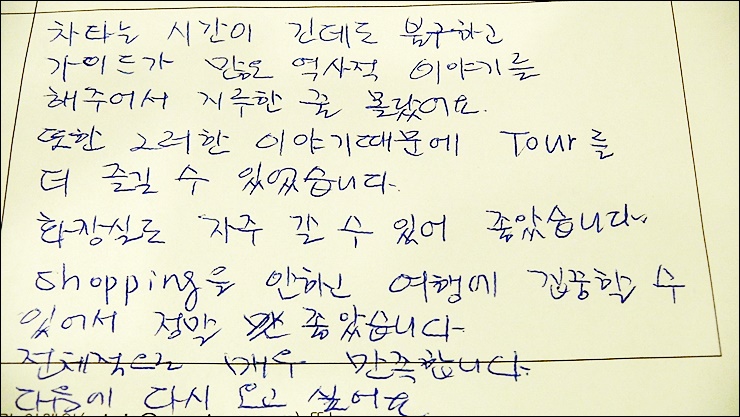 차타는 시간이 긴데도 불구하고
가이드가 많은 역사적 이야기를
해주어서 지루한 줄 몰랐어요.
또한 그러한 이야기때문에 Tour를
더 즐길 수 있었습니다.
화장실도 자주 갈 수 있어 좋았습니다.
Shopping을 안하고 여행에 집중할 수
있어서 정말 좋았습니다.
전체적으로 매우 만족합니다.
다음에 다시 오고 싶어요